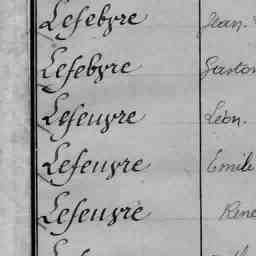 Lefebvre Jean
Lefebvre Gaston
Lefeuvre Léon.
Lefeuvre Emile
Lefeuvre René